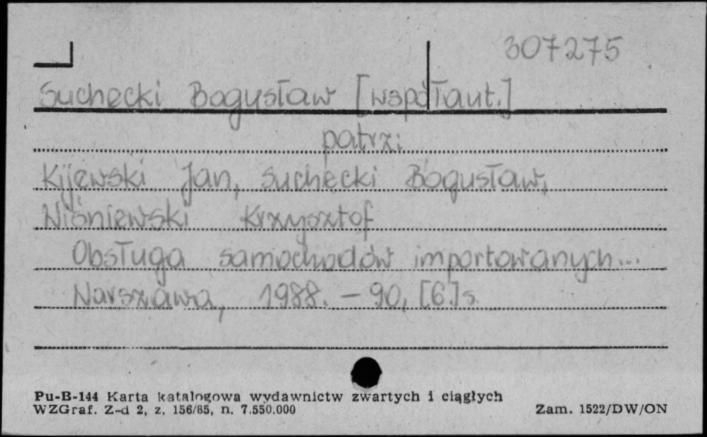 307275
Suchecki Bogusław [współaut.]
patrz:
Kijewski Jan, Suchecki Bogusław,
Wiśniewski Krzysztof
Obsługa samochodów importowanych...
Warszawa, 1988. – 90, [6] s.
Pu-B-144 Karta katalogowa wydawnictw zwartych i ciągłych
WZGraf. Z-d 2, z. 156/85, n. 7.550.000
Zam. 1522/DW/ON